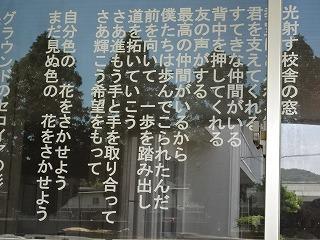 光射す校舎の窓
君を支えてくれる
すてきな仲間がいる
背中を押してくれる
友の声がする
最高の仲間がいるから
僕たちは歩んでこられたんだ
前を向いて 一歩を踏み出し
道を拓いていこう
さあ進もう手と手を取り合って
さあ輝こう希望をもって
自分色の 花をさかせよう
まだ見ぬ色の 花をさかせよう
グラウンドのセコイアの